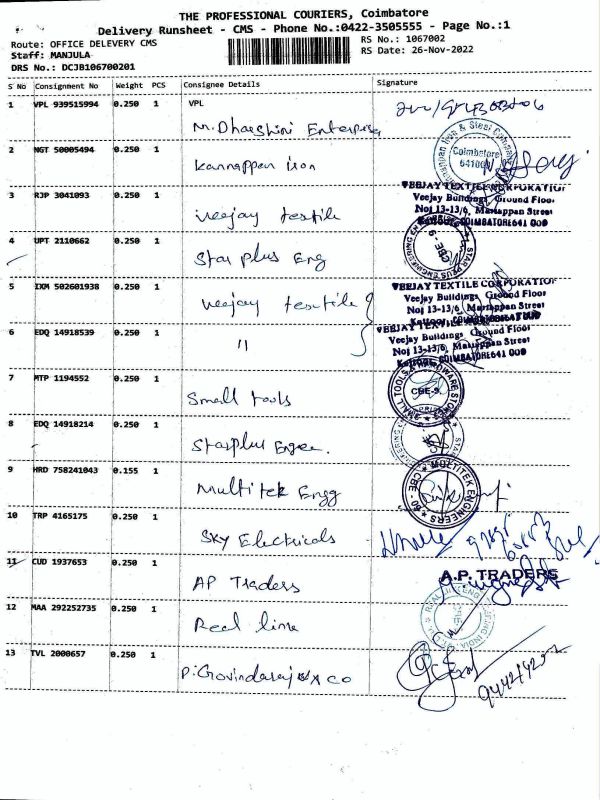 THE PROFESSIONAL COURIERS, Coimbatore
Delivery Runsheet - CMS - Phone No.:0422-3505555 - Page No.:1
Route: OFFICE DELEVERY CMS
RS No.: 1067002
Staff: MANJULA
RS Date: 26-Nov-2022
DRS No.: DCJB106700201
S No Consignment No Weight PCS Consignee Details Signature
1 VPL 939515994 0.250 1 VPL
M. Dharshini Enterprise
2 NGT 50005494 0.250 1
Kannappan iron
Coimbatore
3 RJP 3041093 0.250 1
veejay textile
VEEJAY TEXTILE CORPORATION
Veejay Buildings, Ground Floor
No; 13-13/6, Mariappan Street
Kattoor, COIMBATORE 641 009
4 UPT 2110662 0.250 1
Star plus Eng
STAR PLUS ENGINEERING
CBE - 9
5 IXM 502601938 0.250 1
veejay textile
VEEJAY TEXTILE CORPORATION
Veejay Buildings, Ground Floor
No; 13-13/6, Mariappan Street
6 EDQ 14918539 0.250 1
"
VEEJAY TEXTILE
Veejay Buildings, Ground Floor
No; 13-13/6, Mariappan Street
Kattoor, COIMBATORE 641 009
7 MTP 1194552 0.250 1
Small tools
SMALL TOOLS & HARDWARE STORES
CBE-9
8 EDQ 14918214 0.250 1
Starplus Engee.
9 HRD 758241043 0.155 1
Multitek Engg
MULTITEK ENGINEERS
CBE - 09
10 TRP 4165175 0.250 1
SKY Electricals
11 CUD 1937653 0.250 1
AP Traders
A.P. TRADERS
12 MAA 292252735 0.250 1
Real line
13 TVL 2000657 0.250 1
P. Govindaraj & CO